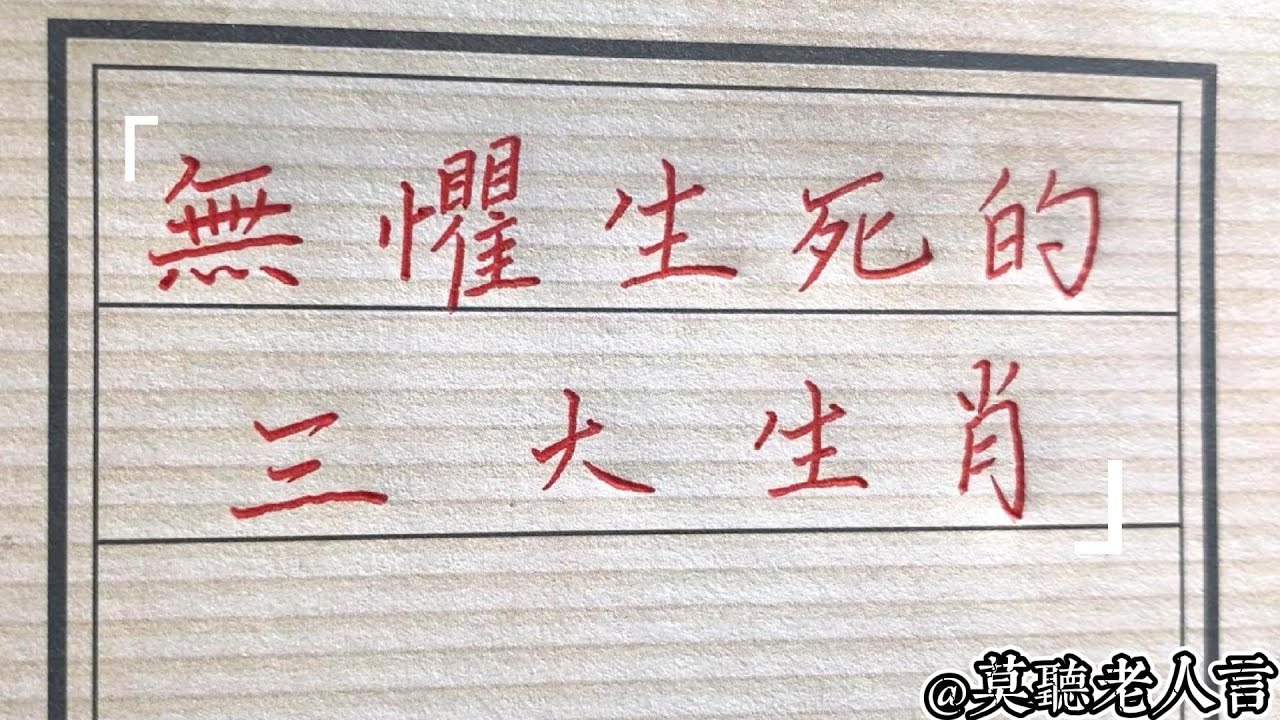 「無懼生死的
三大生肖」
@莫聽老人言